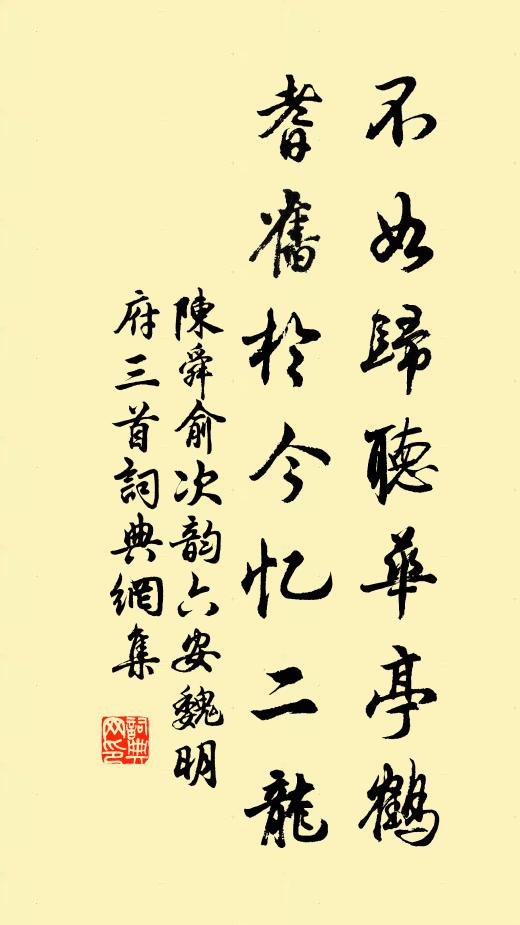 不如歸聽華亭鶴
耆舊於今忆二龍
陳舜俞次韵六安魏明
府三首詞典網集
詞典
网印